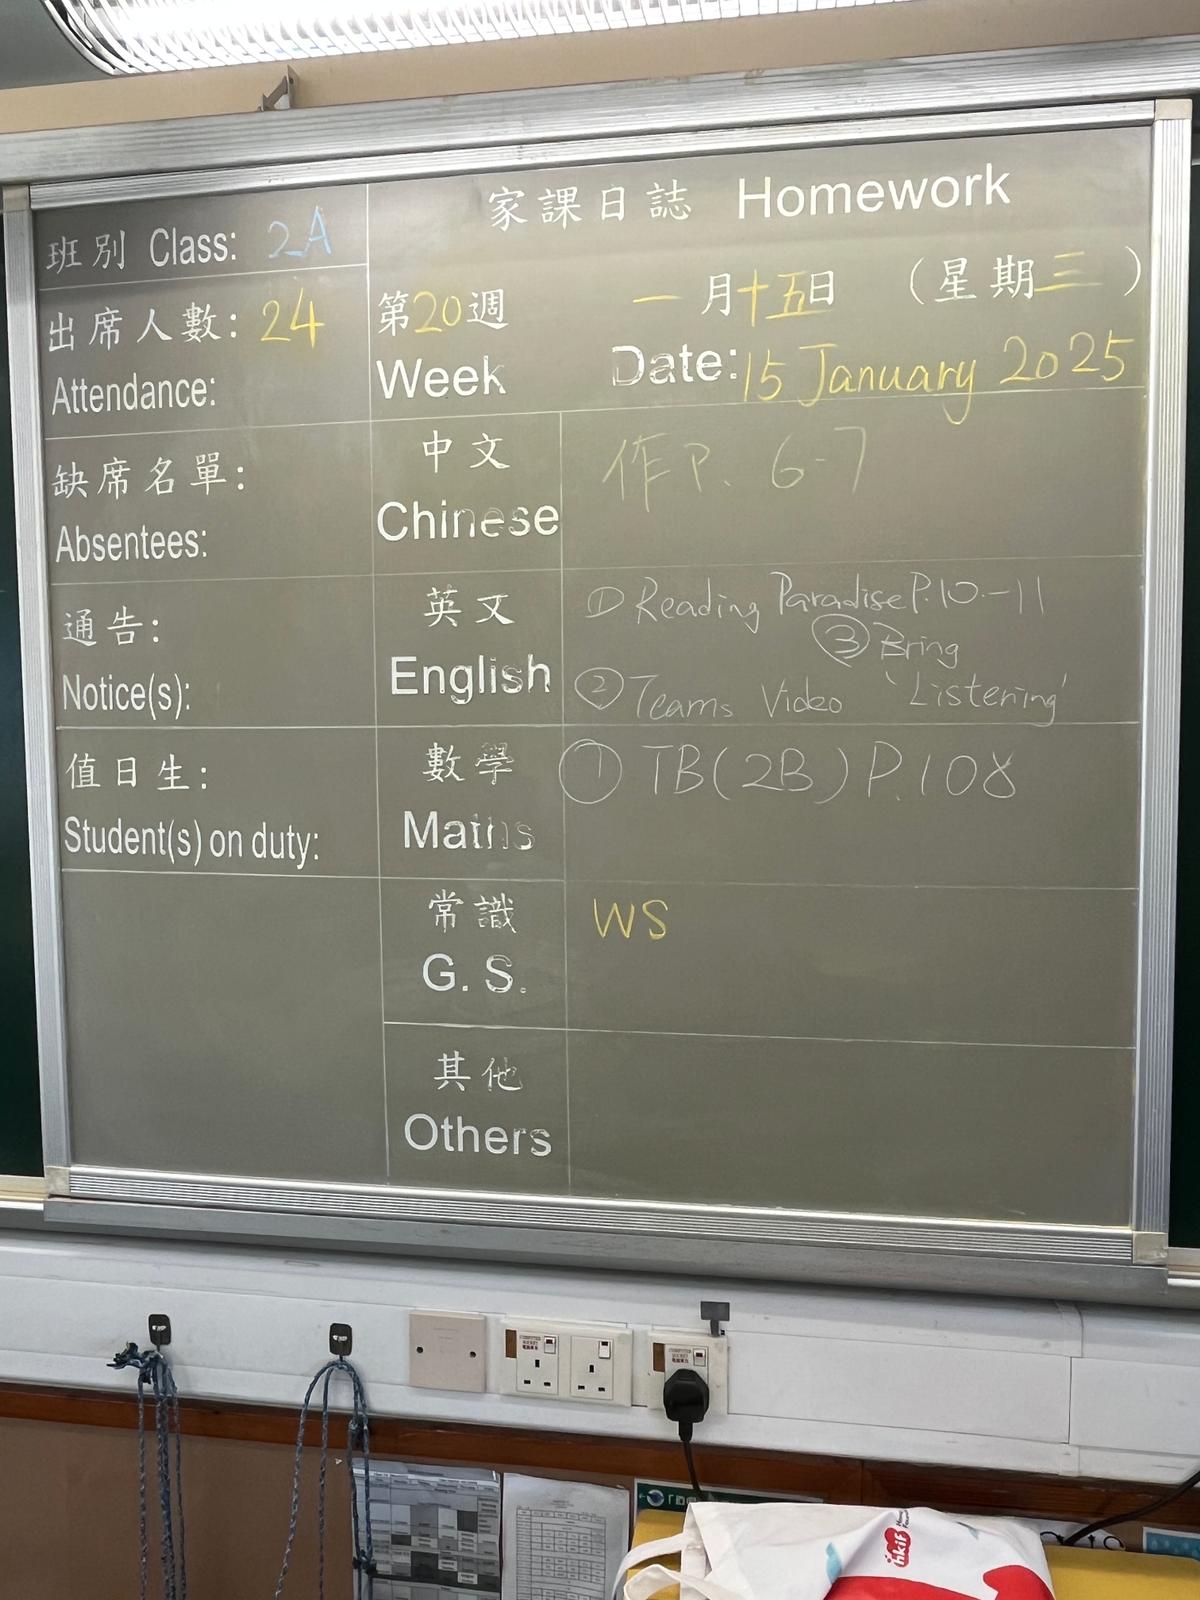 家課日誌 Homework
班別 Class: 2A
出席人數: 24
Attendance:
第20週
Week
一月十五日 (星期三)
Date: 15 January 2025
缺席名單:
Absentees:
中文
Chinese
作P. 6-7
通告:
Notice(s):
英文
English
① Reading Paradise P.10-11
③ Bring
② Teams Video 'Listening'
值日生:
Student(s) on duty:
數學
Maths
① TB(2B) P.108
常識
G. S.
WS
其他
Others
hkif